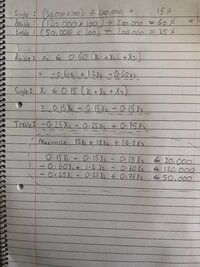 Single : (30,000 x 100) ÷ 200,000 = 15%
double : (120,000 x 100) ÷ 200,000 = 60%
treble : (50,000 x 100) ÷ 200,000 = 25%
double : x₂ ≤ 0.60 (x₁ + x₂ + x₃)
= -0.60x₁ + 1.2x₂ - 0.60x₃
Single : x₁ ≤ 0.15 (x₁ + x₂ + x₃)
= 0.15x₁ - 0.15x₂ - 0.15x₃
Treble : -0.25x₁ - 0.25x₂ + 0.75x₃
Maximise
0.15x₁ - 0.15x₂ - 0.15x₃ ≤ 30,000
-0.60x₁ + 1.2x₂ - 0.60x₃ ≤ 120,000
-0.25x₁ - 0.25x₂ + 0.75x₃ ≤ 50,000